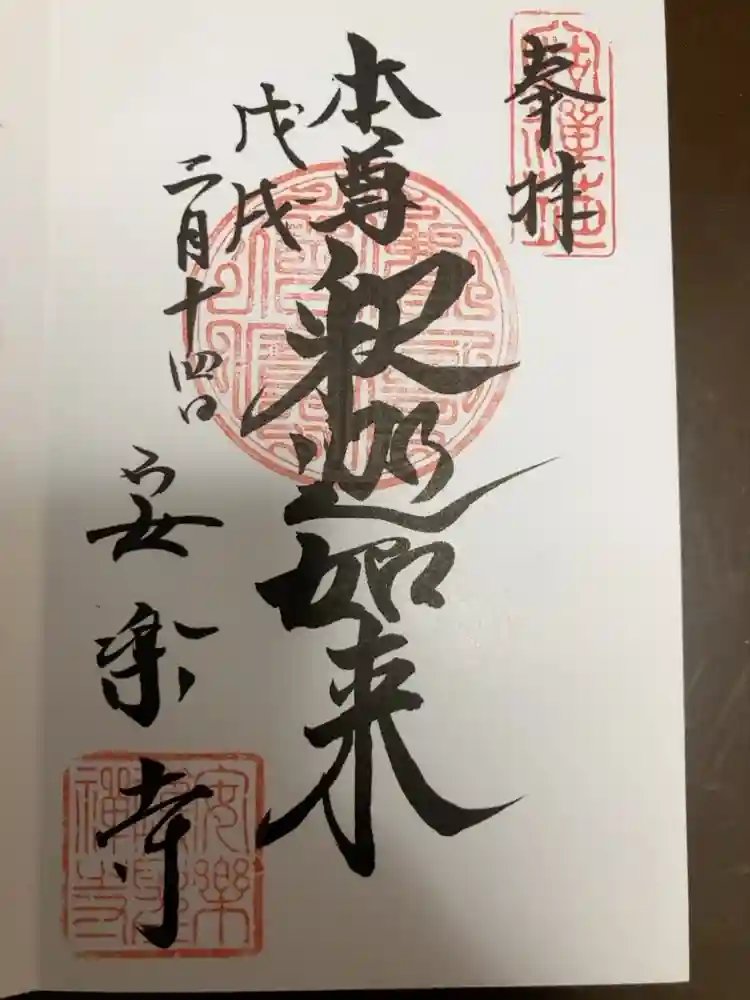 奉拝
本尊釈迦如来
戊戌
二月十四日
安楽寺